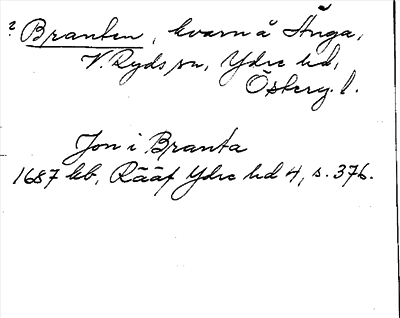 ? Branten, kvarn å Ånga,
V. Ryds sn, Ydre hd,
Österg. l.
Jon i Branta
1687 kb, Rääf Ydre hd 4, s. 376.